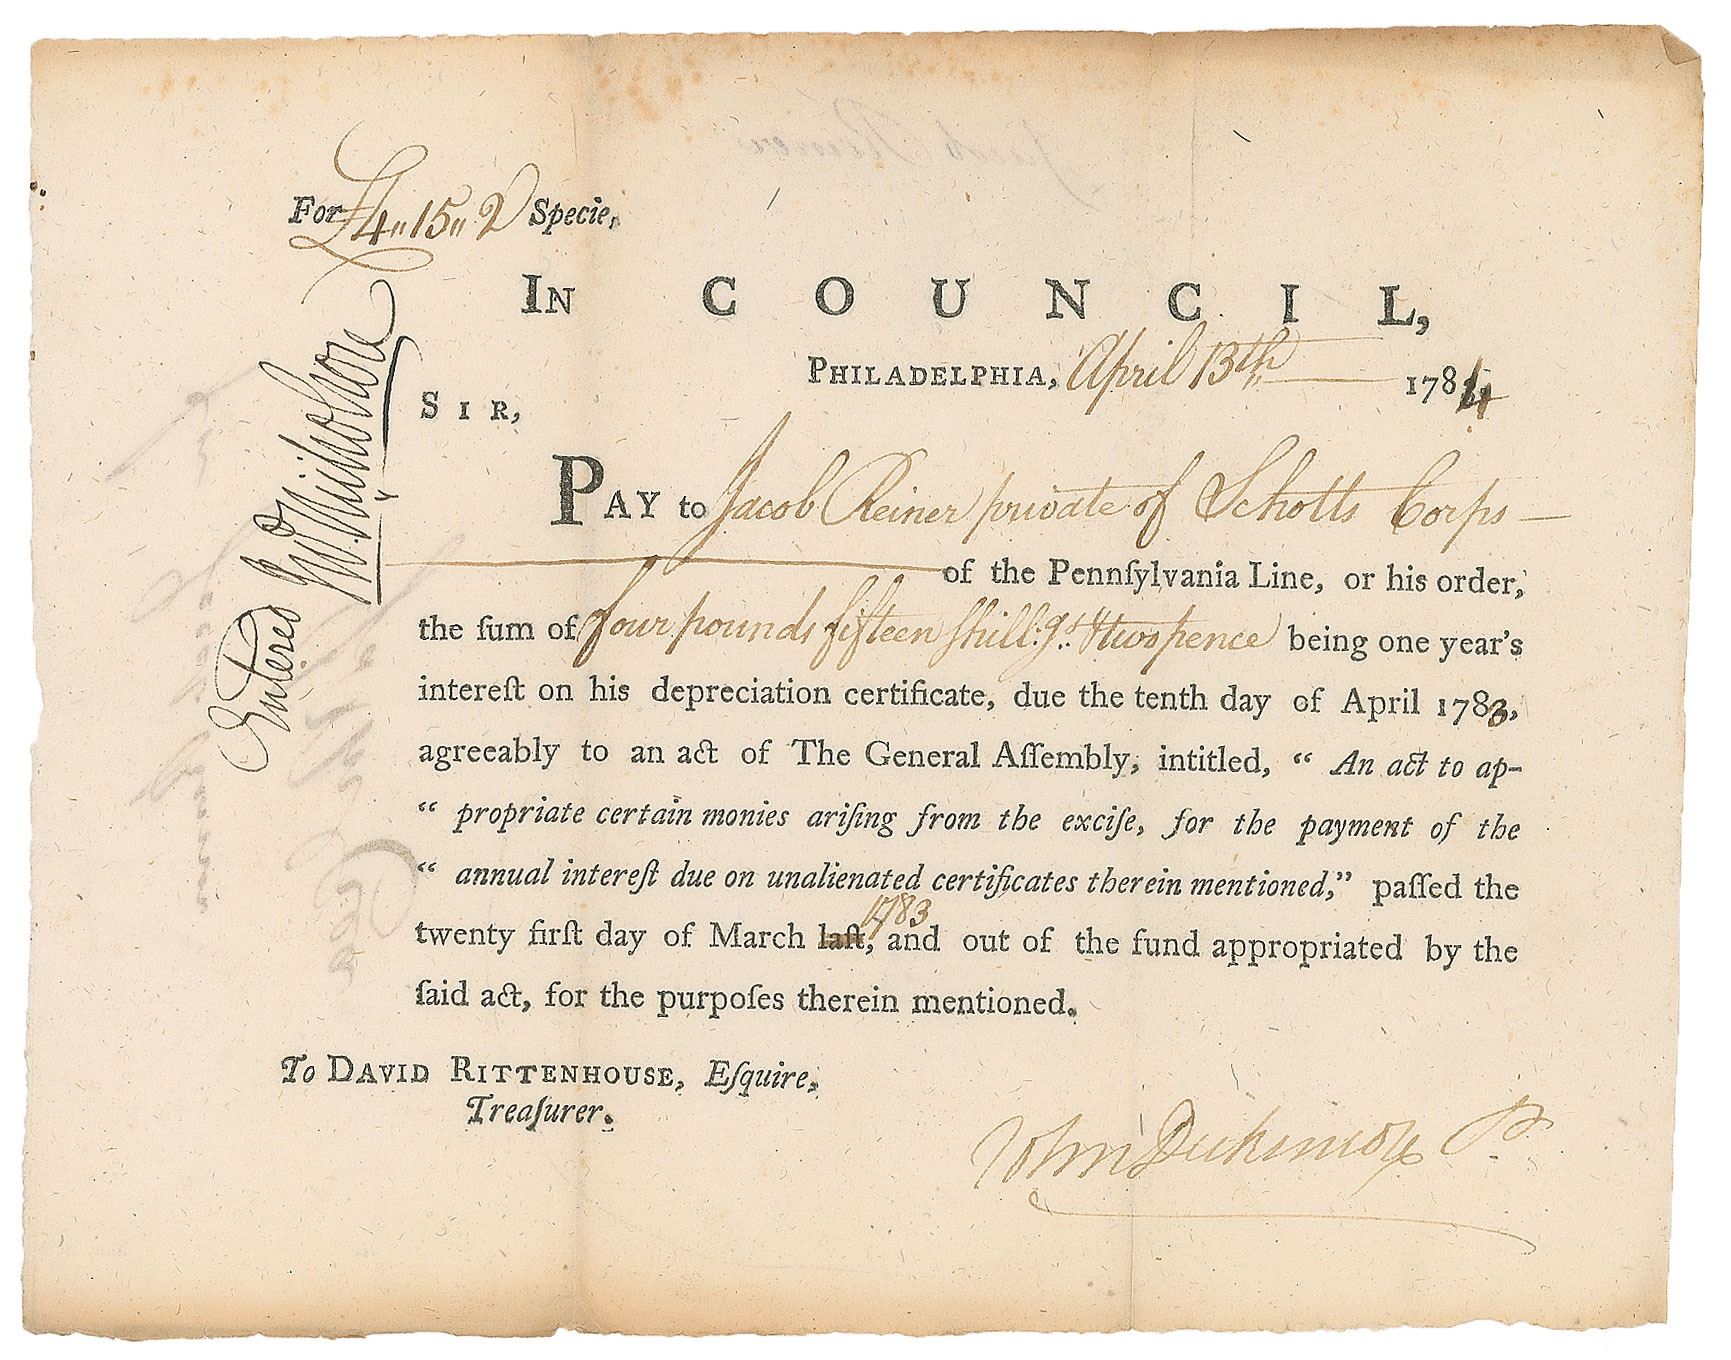 For £4,,15,,2 Specie,
IN COUNCIL,
PHILADELPHIA, April 13th 1784
SIR,
PAY to Jacob Reiner private of Schotts Corps
of the Pennſylvania Line, or his order,
the ſum of four pounds fifteen ſhill:gs & twopence being one year's
intereſt on his depreciation certificate, due the tenth day of April 1783,
agreeably to an act of The General Aſſembly, intitled, “ An act to ap-
“ propriate certain monies ariſing from the exciſe, for the payment of the
“ annual intereſt due on unalienated certificates therein mentioned,” paſſed the
twenty firſt day of March laſt, 1783 and out of the fund appropriated by the
ſaid act, for the purpoſes therein mentioned.
To DAVID RITTENHOUSE, Eſquire,
Treaſurer.
John Dickinson P.
Entered
Jacob Reiner